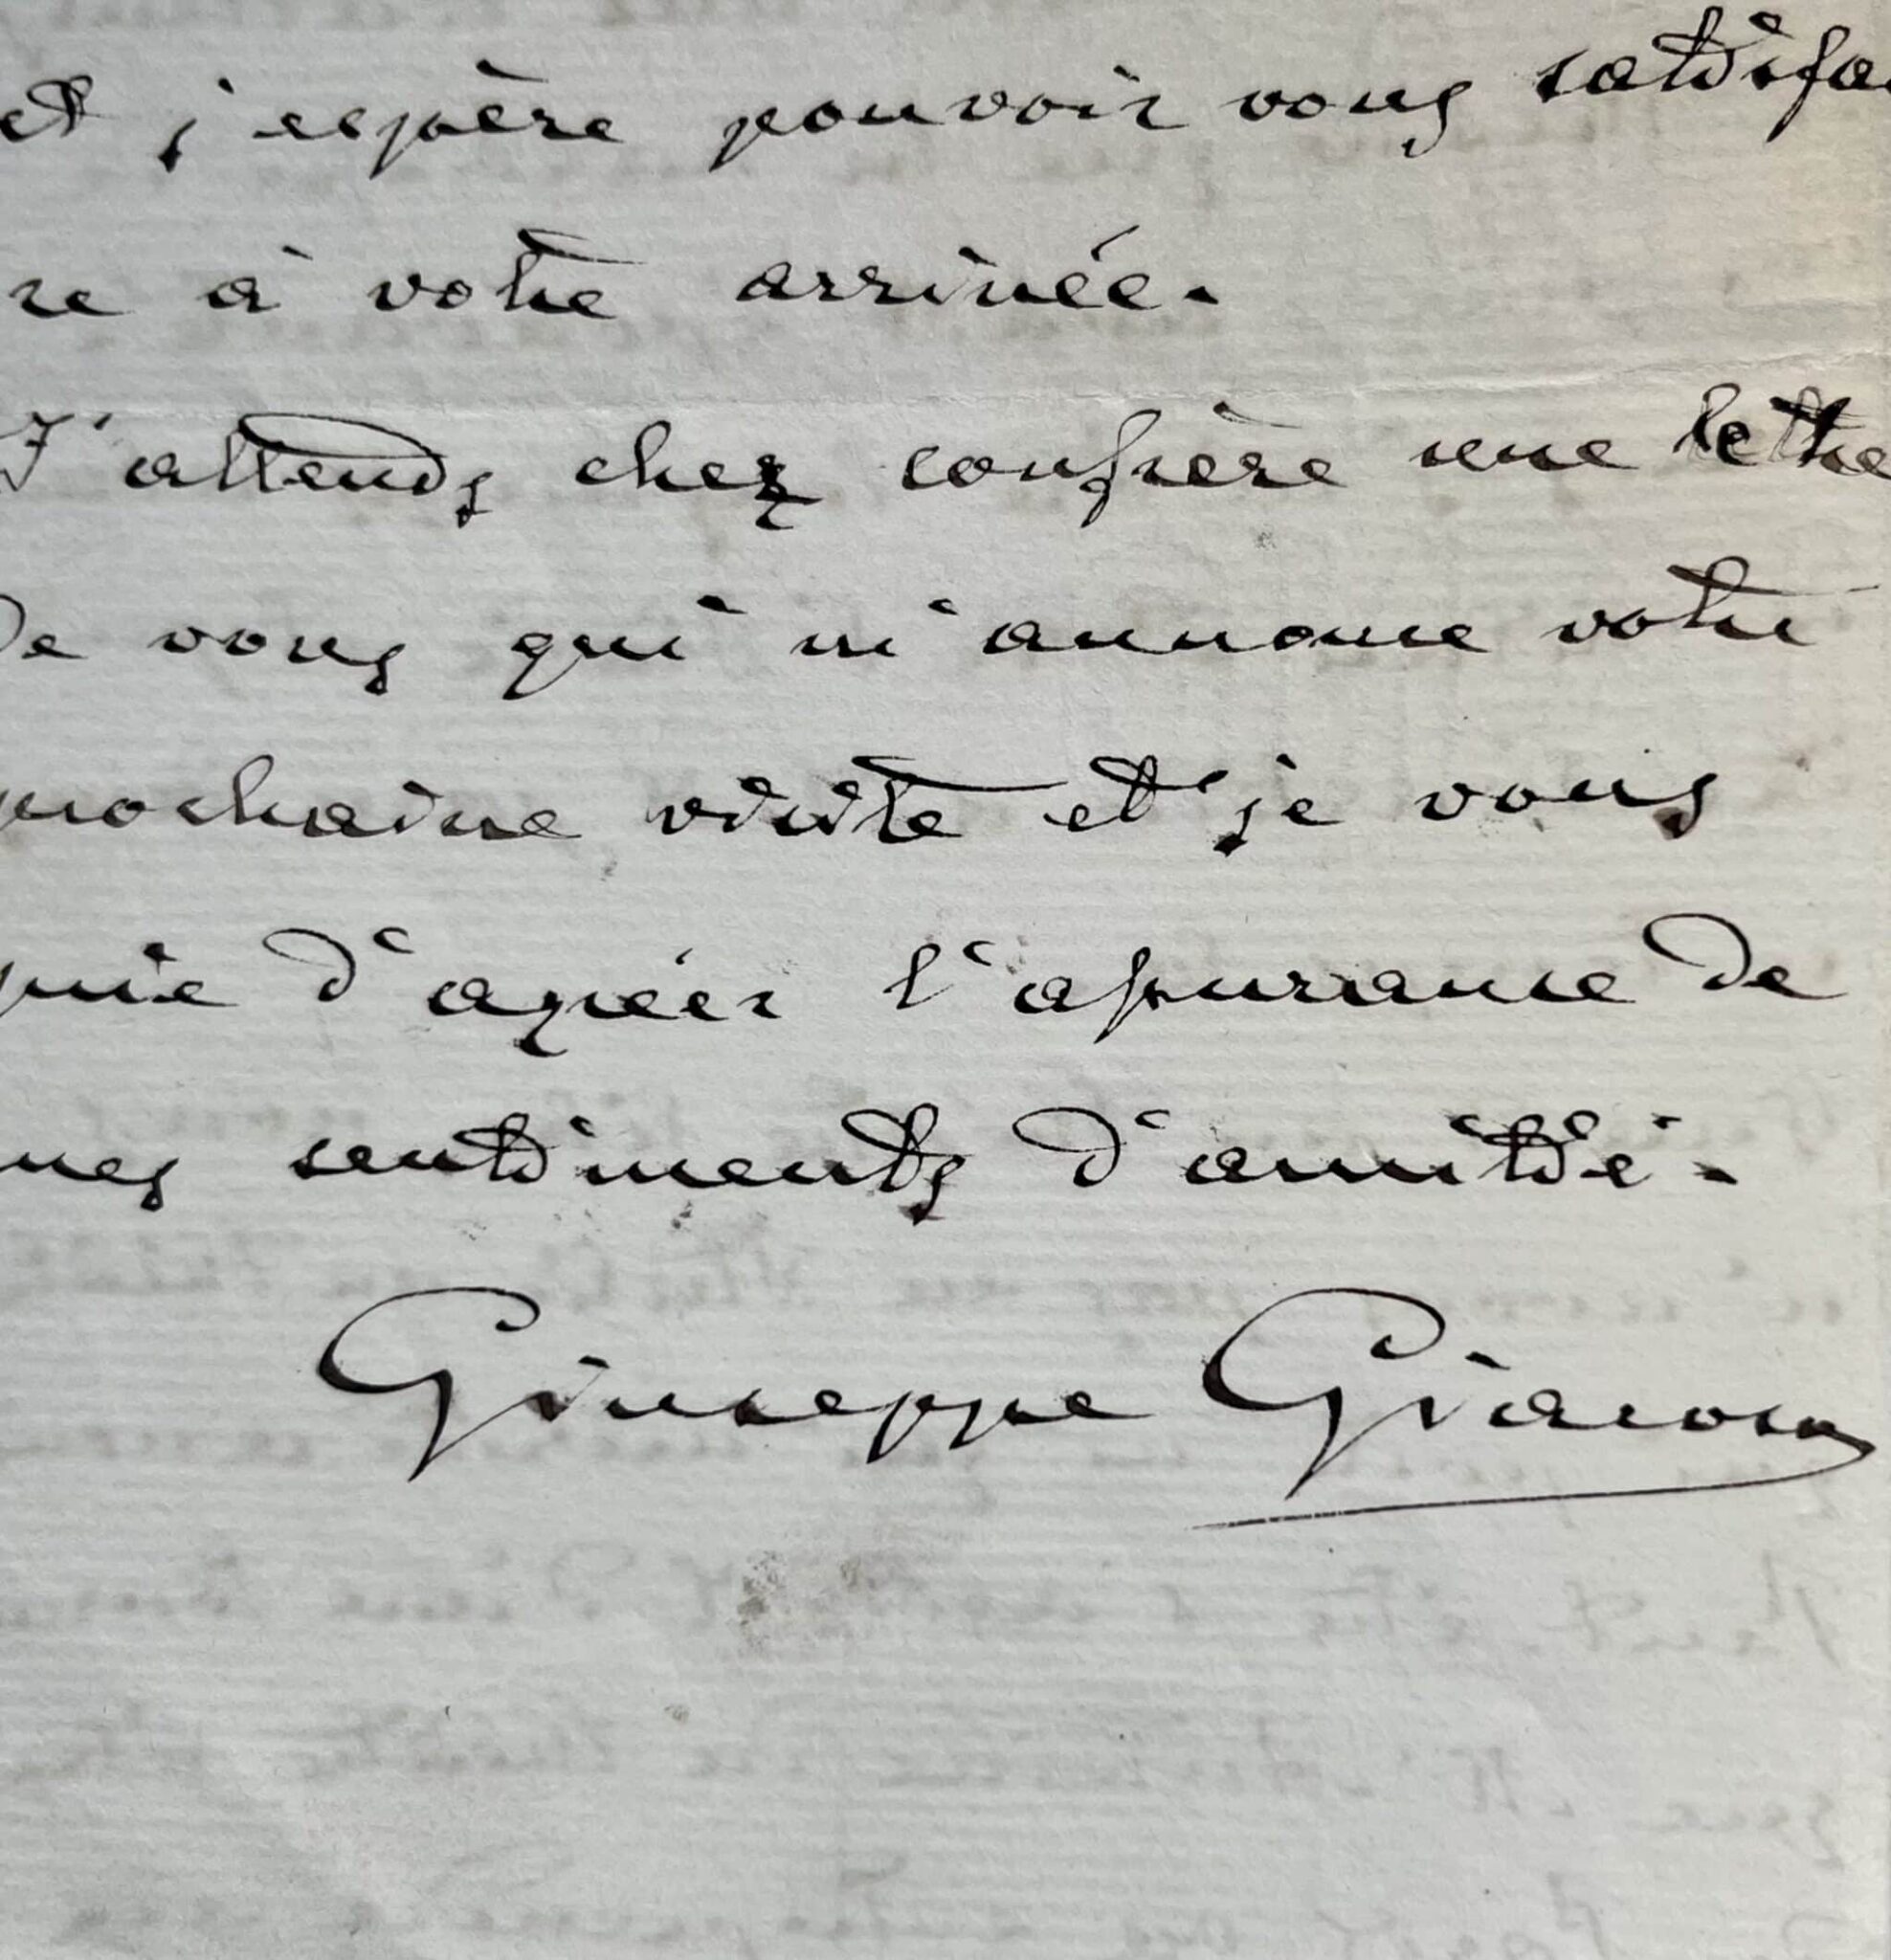 et j'espère pouvoir vous satisfai
re à votre arrivée.
J'attends chez confrère une lettre
de vous qui m'annonce votre
prochaine visite et je vous
prie d'agréér l'assurance de
mes sentiments d'amitié.
Giuseppe Giacosa